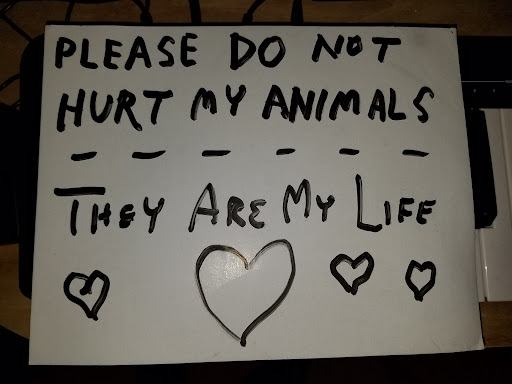 PLEASE DO NOT
HURT MY ANIMALS
- - - - - -
THEY ARE MY LIFE